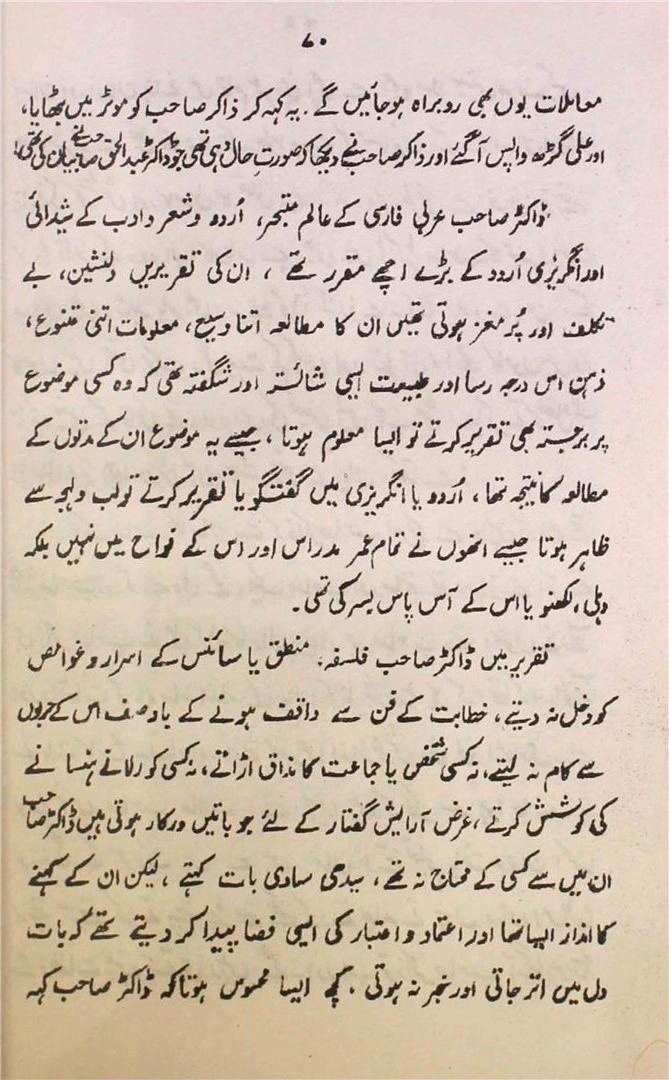 ۷۰
معاملات یوں بھی روبراہ ہوجائیں گے. یہ کہہ کر ذاکر صاحب کو موٹر میں بٹھایا،
اور علی گڑھ واپس آگئے اور ذاکر صاحب نے دیکھا کہ صورتِ حال وہی تھی جو ڈاکٹر عبدالحق صاحب نے بیان کی تھی!
ڈاکٹر صاحب عربی فارسی کے عالم متبحر، اُردو شعر و ادب کے شیدائی
اور انگریزی اُردو کے بڑے اچھے مقرر تھے، ان کی تقریریں دلنشین، بے
تکلف اور پُر مغز ہوتی تھیں ان کا مطالعہ اتنا وسیع، معلومات اتنی متنوع،
ذہن اس درجہ رسا اور طبیعت ایسی شائستہ اور شگفتہ تھی کہ وہ کسی موضوع
پر برجستہ بھی تقریر کرتے تو ایسا معلوم ہوتا، جیسے یہ موضوع ان کے مدتوں کے
مطالعہ کا نتیجہ تھا، اُردو یا انگریزی میں گفتگو یا تقریر کرتے تو لب و لہجہ سے
ظاہر ہوتا جیسے انھوں نے تمام عمر مدراس اور اس کے نواح میں نہیں بلکہ
دہلی، لکھنو یا اس کے آس پاس بسر کی تھی۔
تقریر میں ڈاکٹر صاحب فلسفہ، منطق یا سائنس کے اسرار و غوامض
کو دخل نہ دیتے، خطابت کے فن سے واقف ہونے کے باوصف اس کے حربوں
سے کام نہ لیتے، نہ کسی شخص یا جماعت کا مذاق اڑاتے، نہ کسی کو رلانے ہنسانے
کی کوشش کرتے، غرض آرایش گفتار کے لئے جو باتیں درکار ہوتی ہیں ڈاکٹر صاحب
ان میں سے کسی کے محتاج نہ تھے، سیدھی سادی بات کہتے، لیکن ان کے کہنے
کا انداز ایسا تھا اور اعتماد و اعتبار کی ایسی فضا پیدا کر دیتے تھے کہ بات
دل میں اتر جاتی اور خبر نہ ہوتی. کچھ ایسا محسوس ہوتا کہ ڈاکٹر صاحب کہہ